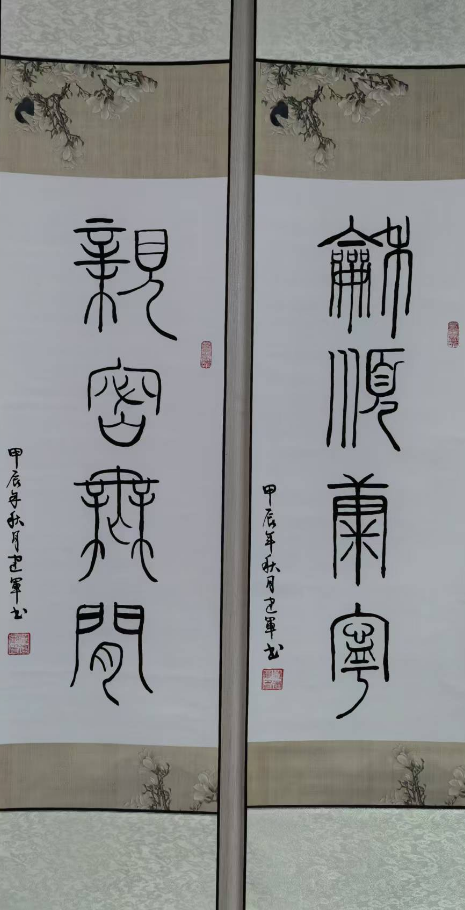 龢順康寧
甲辰年秋月建軍書
親密無間
甲辰年秋月建軍書